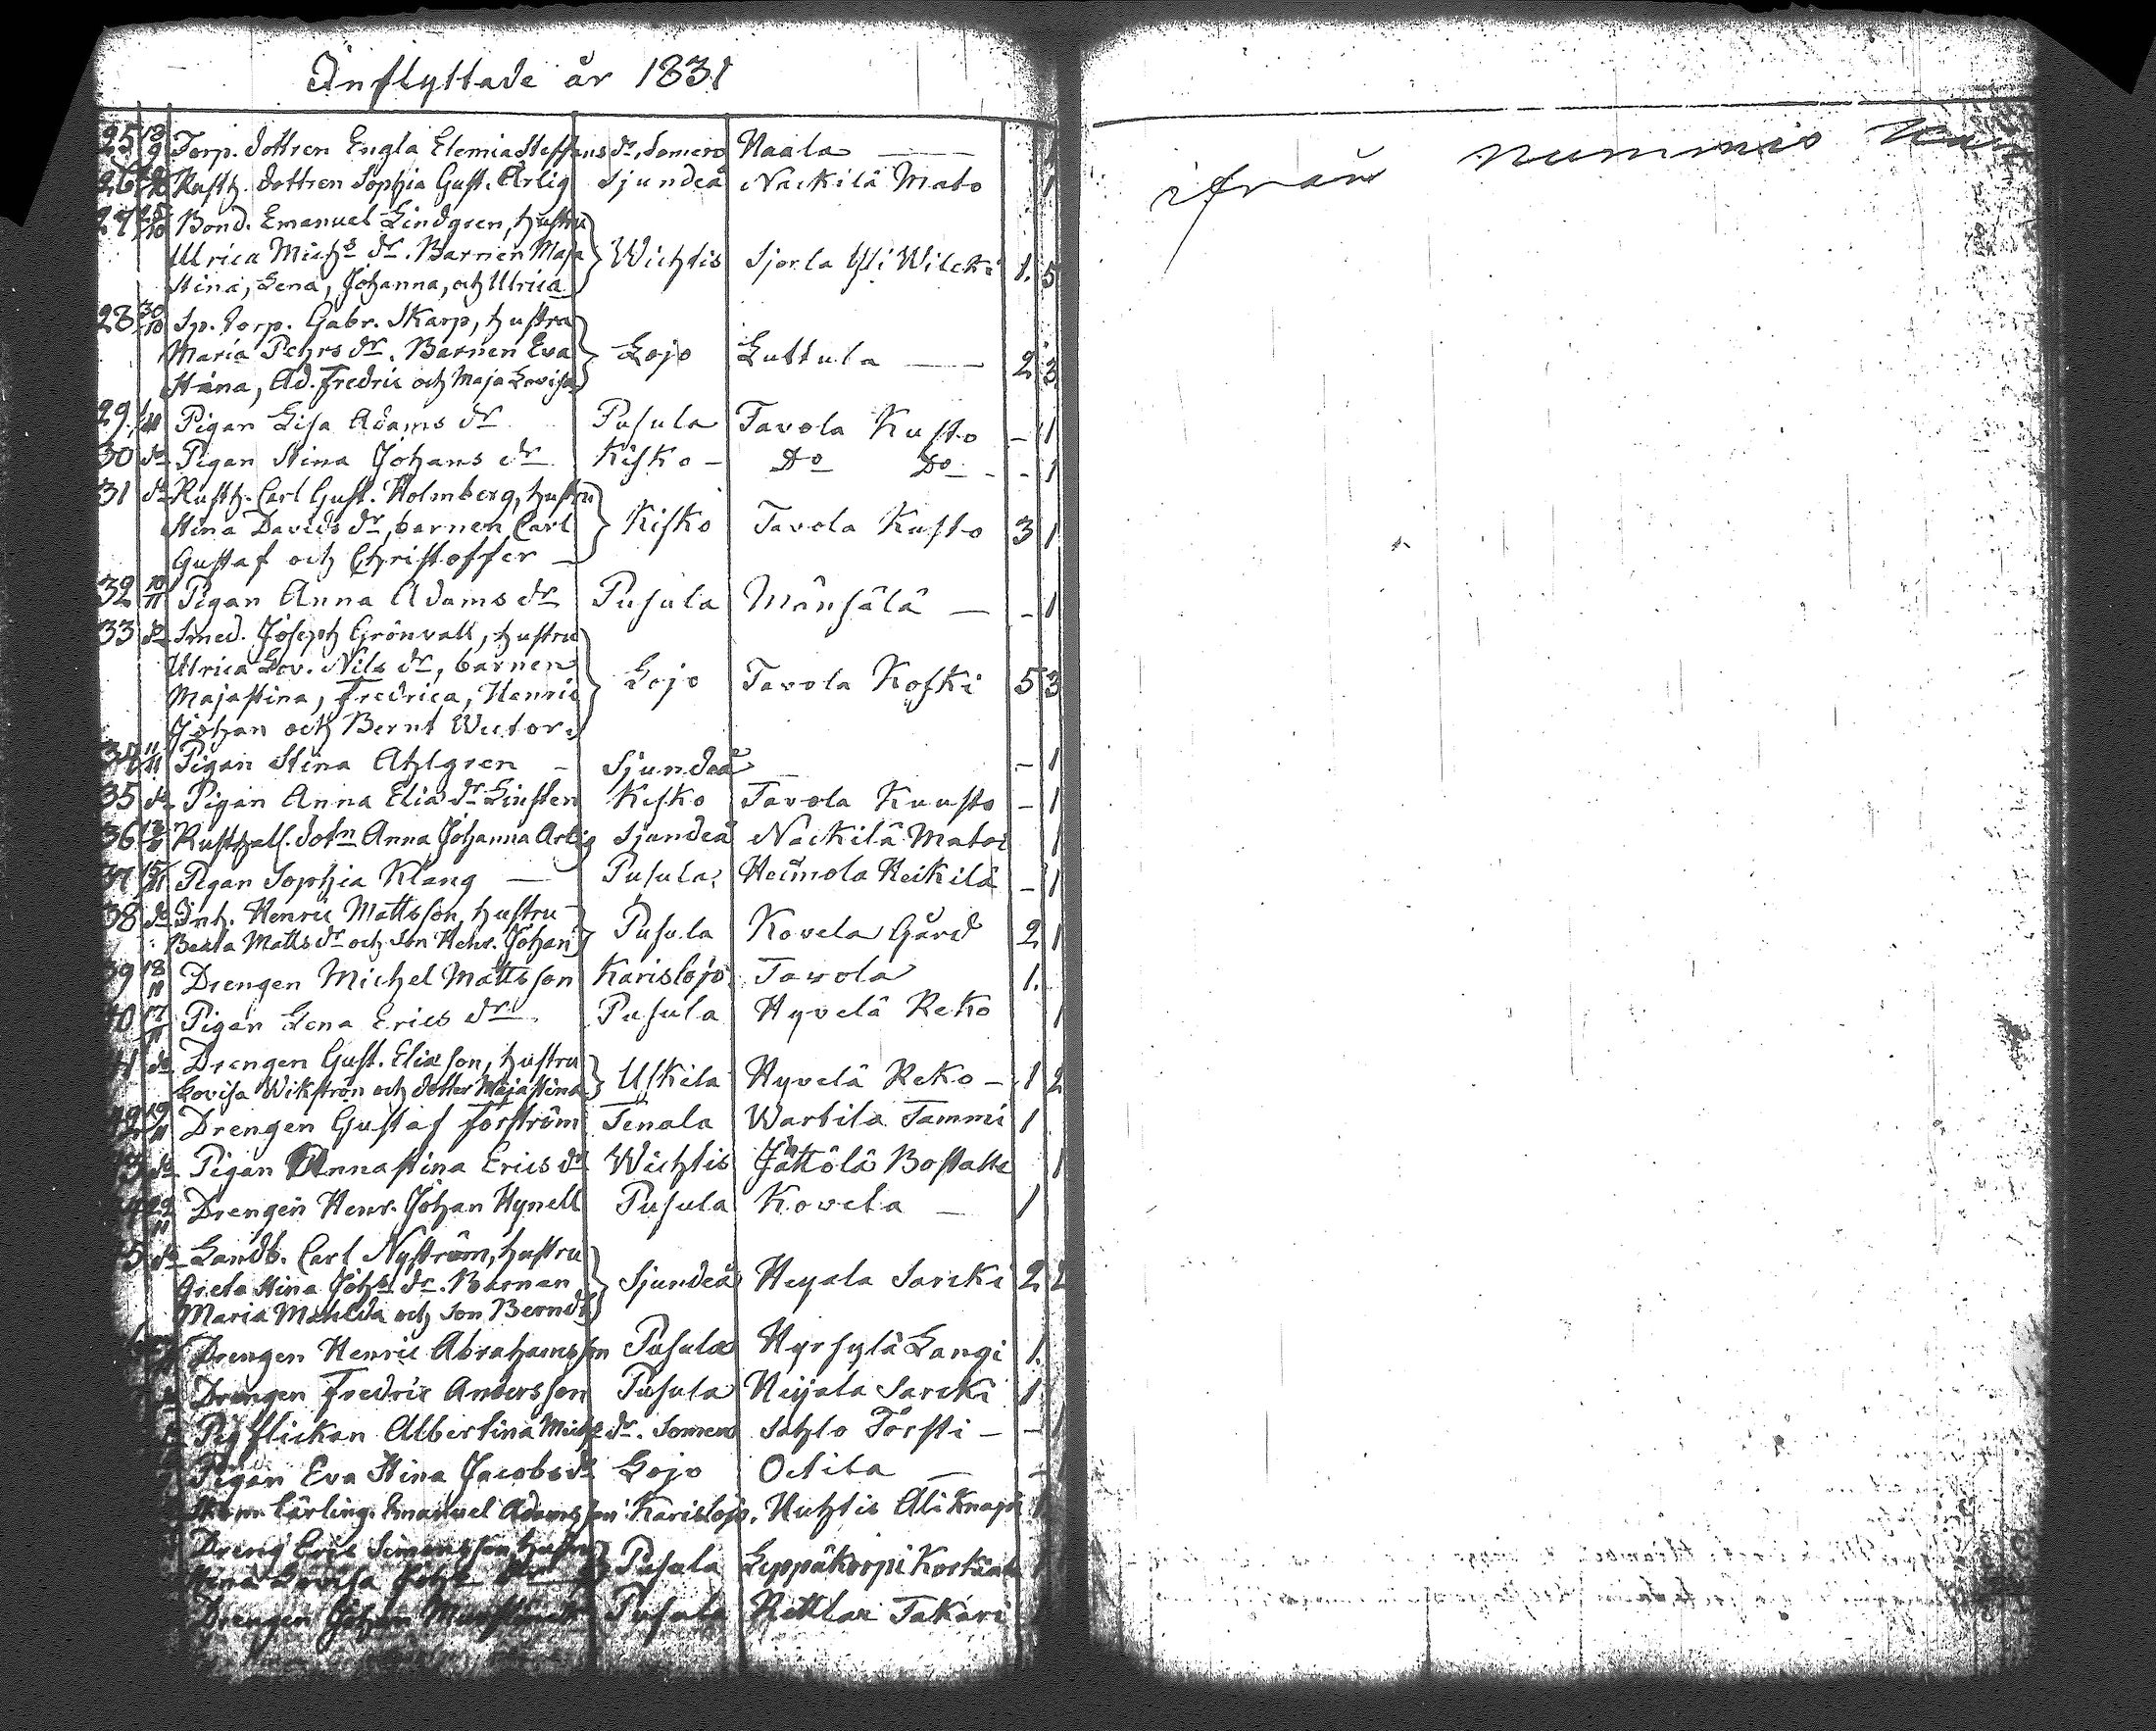 Inflyttade år 1831
25 18/9 Torp. dottren Engla Elemia Steffans dr. Somero Haala —
26 Rusth. dottren Sophia Gust. Arlig Sjundeå Nackilä Mato 1
27 25/10 Bond. Emanuel Lindgren, hustru
Ulrica Michs dr. Barnen Maja Wichtis Sjorla Yli Wilcki 1. 5
Stina, Lena, Johanna, och Ulrica
28 30/10 Sp. torp. Gabr. Skarp, hustru
Maria Pehrs dr. Barnen Eva Lojo Luttula — 2 3
Stina, Ad. Fredric och Maja Lovisa
29 Pigan Lisa Adams dr Pusula Tavola Kusto – 1
30 do Pigan Stina Johans dr Kisko – Do Do – 1
31 do Rusth. Carl Gust. Holmberg, hustru
Stina Davids dr, barnen Carl Kisko Tavola Kusto 3 1
Gustaf och Christoffer —
32 10/11 Pigan Anna Adams dr Pusula Månsälä — – 1
33 do Smed. Joseph Grönvall, hustru
Ulrica Lov. Nils dr, barnen
Majastina, Fredrica, Henric Lojo Tavola Koski 5 3
Johan och Bernt Wictor.
34 11/11 Pigan Stina Ahlgren – Sjundeå – 1
35 do Pigan Anna Elia dr Linsten Kisko Tavola Kuusto – 1
36 Rusthall. dotn Anna Johanna Arlig Sjundeå Nackilä Matoi 1
37 15/11 Pigan Sophia Klang — Pusula Heimola Heikilä – 1
38 do Inh. Henric Mattsson, hustru
Beata Matts dr och son Henr. Johan Pusula Kovela Gård 2 1
39 18/11 Drengen Michel Mattsson Karislojo Tavola 1.
40 17/11 Pigan Lena Erics dr Pusula Hyvelä Reko 1
41 do Drengen Gust. Eliasson, hustru
Lovisa Wikström och dotter Majastina Uskila Hyvelä Reko – 1 2
42 19/11 Drengen Gustaf Forström Tenala Wartila Tammi 1
do Pigan Annastina Erics dr Wichtis Jättölä Bostalle 1
22/11 Drengen Henr. Johan Hynell Pusula Kovela — 1
do Landb. Carl Nyström, hustru
Greta Stina Johs dr. Barnen Sjundeå Heyala Sarcki 2 2
Maria Mathilda och son Berndt
Drengen Henric Abrahamsson Pusula Hyrsylä Langi 1.
Drengen Fredric Andersson Pusula Heijala Sarcki 1
Pigflickan Albertina Michs dr. Somero Sahlo Torsti – – 1
Pigan Eva Stina Jacobs dr Lojo Ochila — –
lärling. Emanuel Adamsson Karislojo. Huhtis Ali Knapi 1
Dreng Eric Simonsson, hustru
Stina Lovisa Johs dr Pusula Leppäkorpi
Drengen Johan Pusula Takari
ifrån Nummis